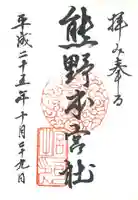 拝み奉る
熊野本宮社
平成二十五年十月二十九日